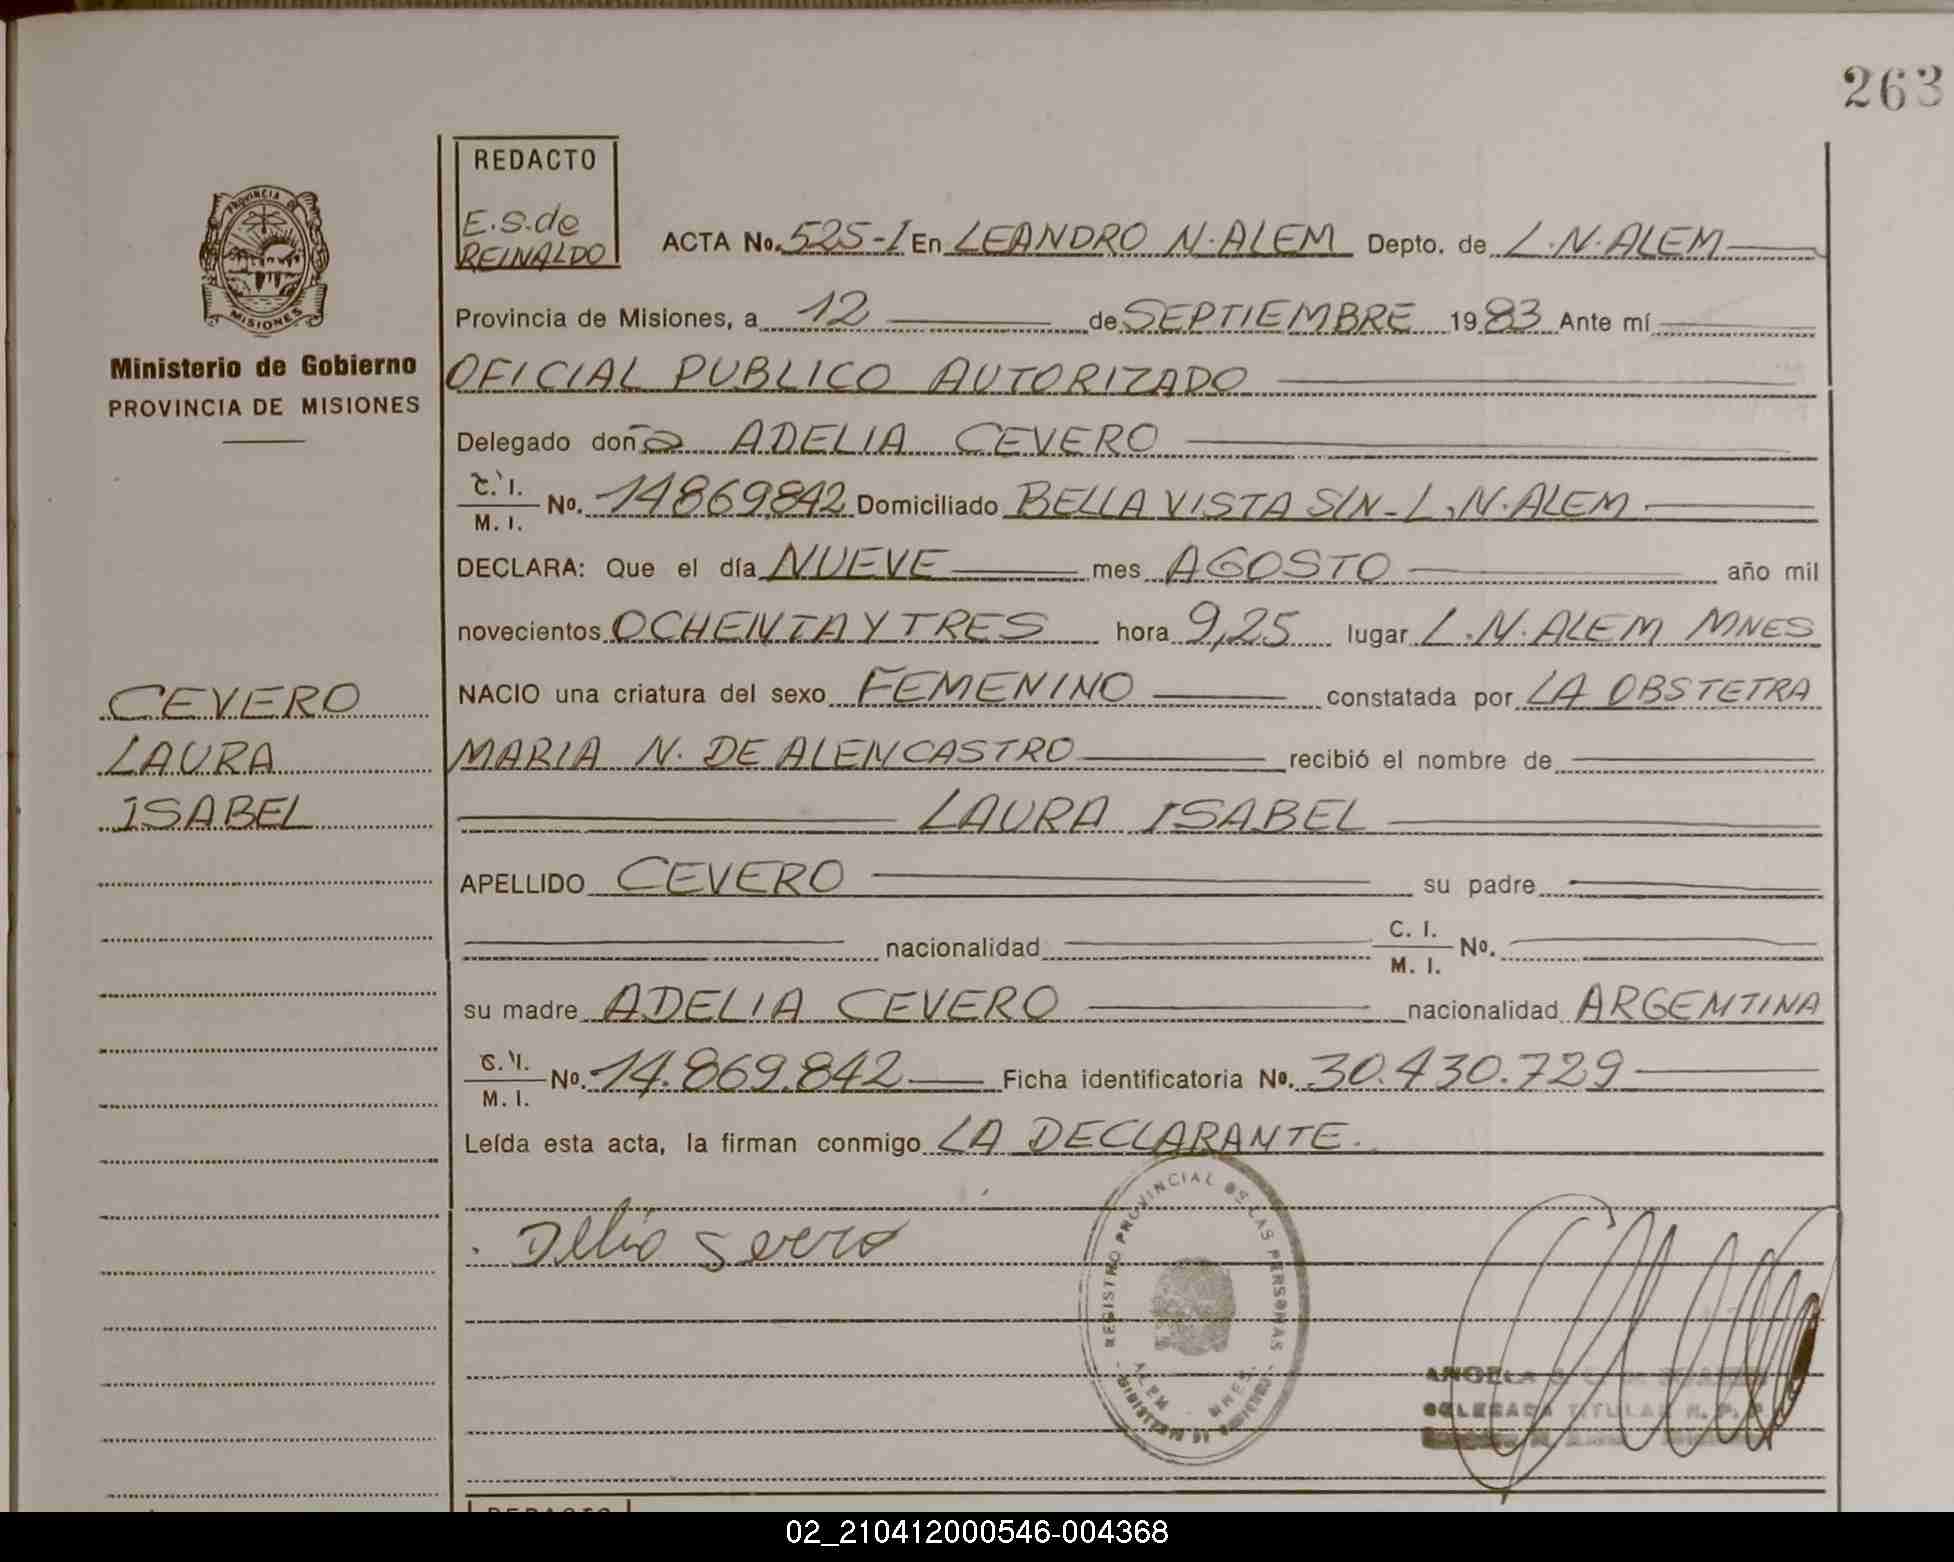 263
REDACTO
E.S.de
REINALDO
PROVINCIA DE
MISIONES
Ministerio de Gobierno
PROVINCIA DE MISIONES
CEVERO
LAURA
ISABEL
ACTA No. 525-I En LEANDRO N. ALEM Depto. de L.N. ALEM
Provincia de Misiones, a 12 de SEPTIEMBRE 1983 Ante mí
OFICIAL PUBLICO AUTORIZADO
Delegado doña ADELIA CEVERO
C. I. M. I. No. 14869.842 Domiciliado BELLA VISTA S/N - L.N. ALEM
DECLARA: Que el día NUEVE mes AGOSTO año mil
novecientos OCHENTA Y TRES hora 9,25 lugar L.N. ALEM MNES
NACIO una criatura del sexo FEMENINO constatada por LA OBSTETRA
MARIA N. DE ALENCASTRO recibió el nombre de
LAURA ISABEL
APELLIDO CEVERO su padre
nacionalidad C. I. M. I. No.
su madre ADELIA CEVERO nacionalidad ARGENTINA
C. I. M. I. No. 14.869.842 Ficha identificatoria No. 30.430.729
Leída esta acta, la firman conmigo LA DECLARANTE.
REGISTRO PROVINCIAL DE LAS PERSONAS
ALEM MNES
ANGELA
DELEGADA TITULAR R. P. P.
REDACTO
02_210412000546-004368